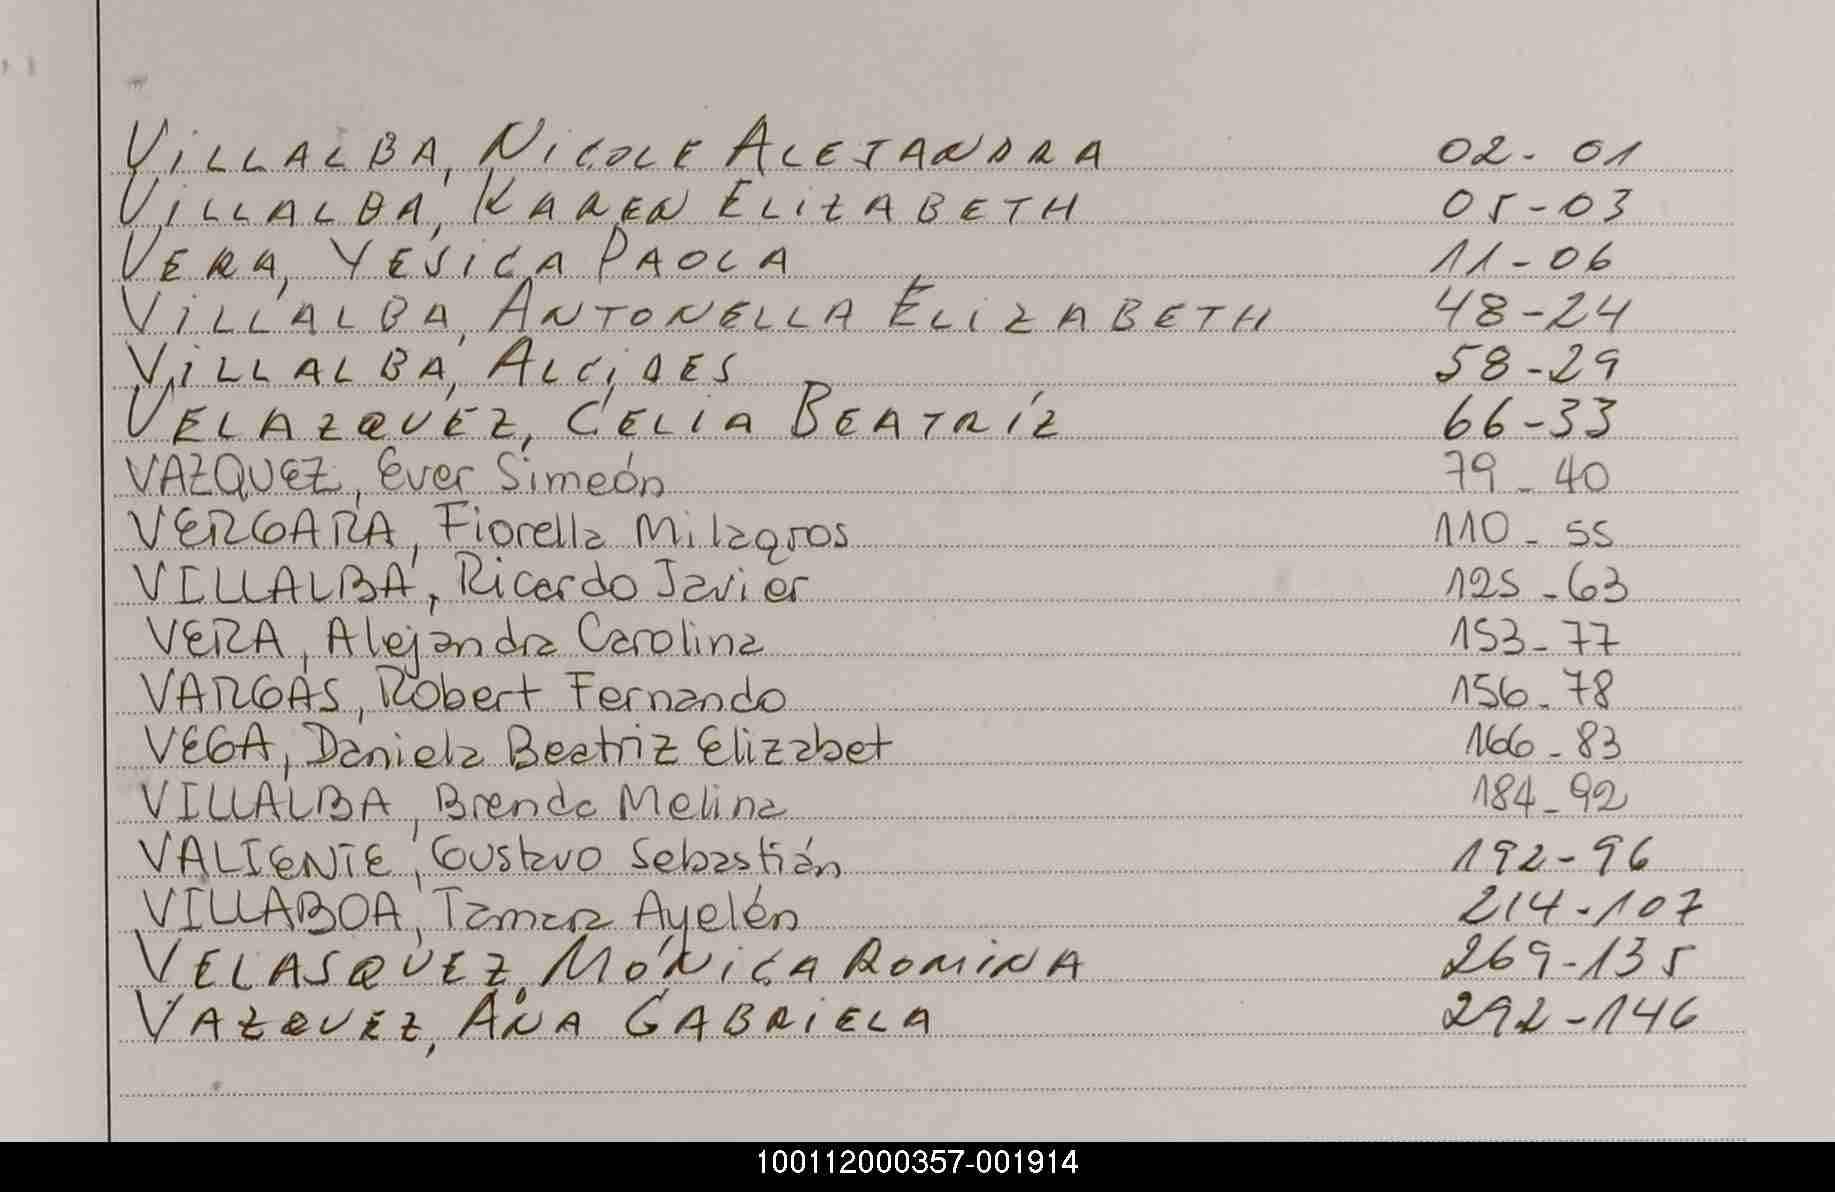 VILLALBA, NICOLE ALEJANDRA 02-01
VILLALBA, KAREN ELIZABETH 05-03
VERA, YESICA PAOLA 11-06
VILLALBA, ANTONELLA ELIZABETH 48-24
VILLALBA, ALCIDES 58-29
VELAZQUEZ, CELIA BEATRÍZ 66-33
VAZQUEZ, Ever Simeón 79-40
VERGARA, Fiorella Milagros 110-55
VILLALBA, Ricardo Javier 125-63
VERA, Alejandra Carolina 153-77
VARGAS, Robert Fernando 156-78
VEGA, Daniela Beatriz Elizabet 166-83
VILLALBA, Brenda Melina 184-92
VALIENTE, Gustavo Sebastián 192-96
VILLABOA, Tamara Ayelén 214-107
VELASQUEZ, MÓNICA ROMINA 269-135
VAZQUEZ, ANA GABRIELA 292-146
100112000357-001914